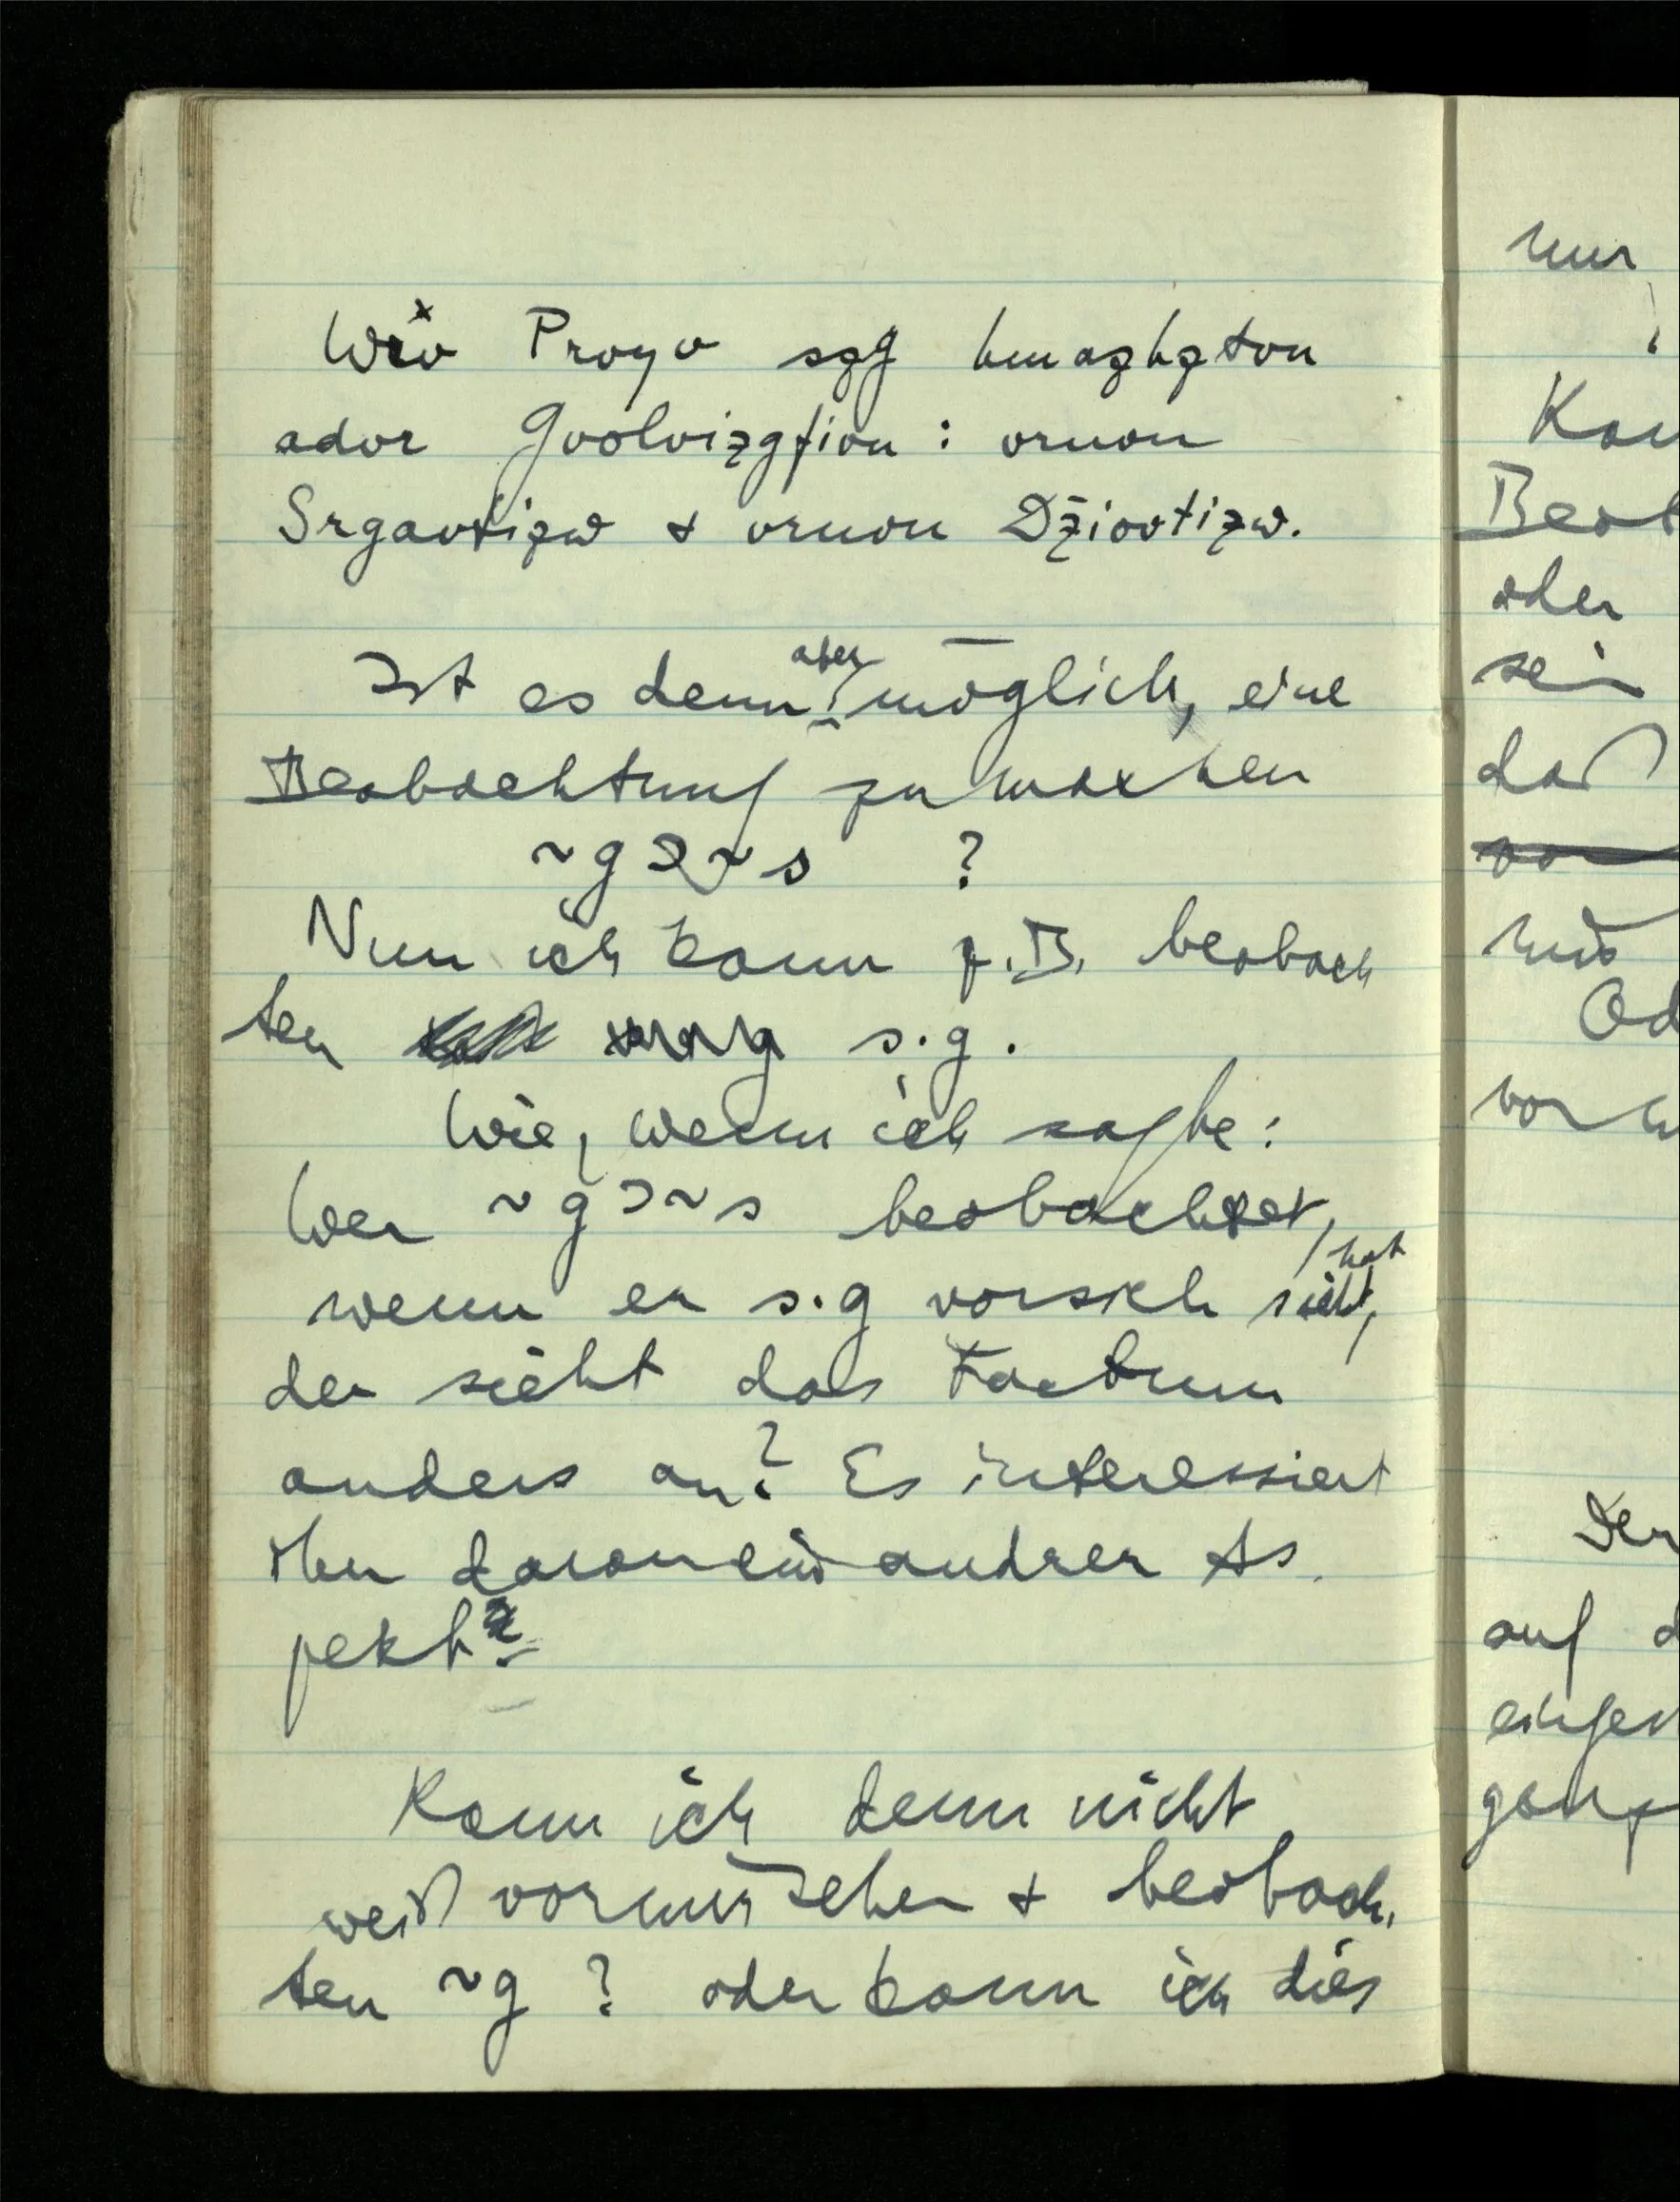 Wiv Proyv szg hmazhgton
advr Gvolvizgfivn : vrmvn
Srgavtizw + vrmvn Dziovtizw.
Ist es denn aber möglich, eine
Beobachtung zu machen
~g ⊃ ~s ?
Nun ich kann z.B. beobach
ten s.g.
Wie, wenn ich sagte:
Wer ~g ⊃ ~s beobachtet,
wenn er s.g vorsich sieht, hat
der sieht das Factum
anders an? Es interessiert
ihn daran ein andrer As-
pekt?
Kann ich denn nicht
weiß vormir sehen + beobach-
ten ~g ? oder kann ich dies
nur
Beob
oder
sein
daß
Od
vor
Der
auf d
ganz